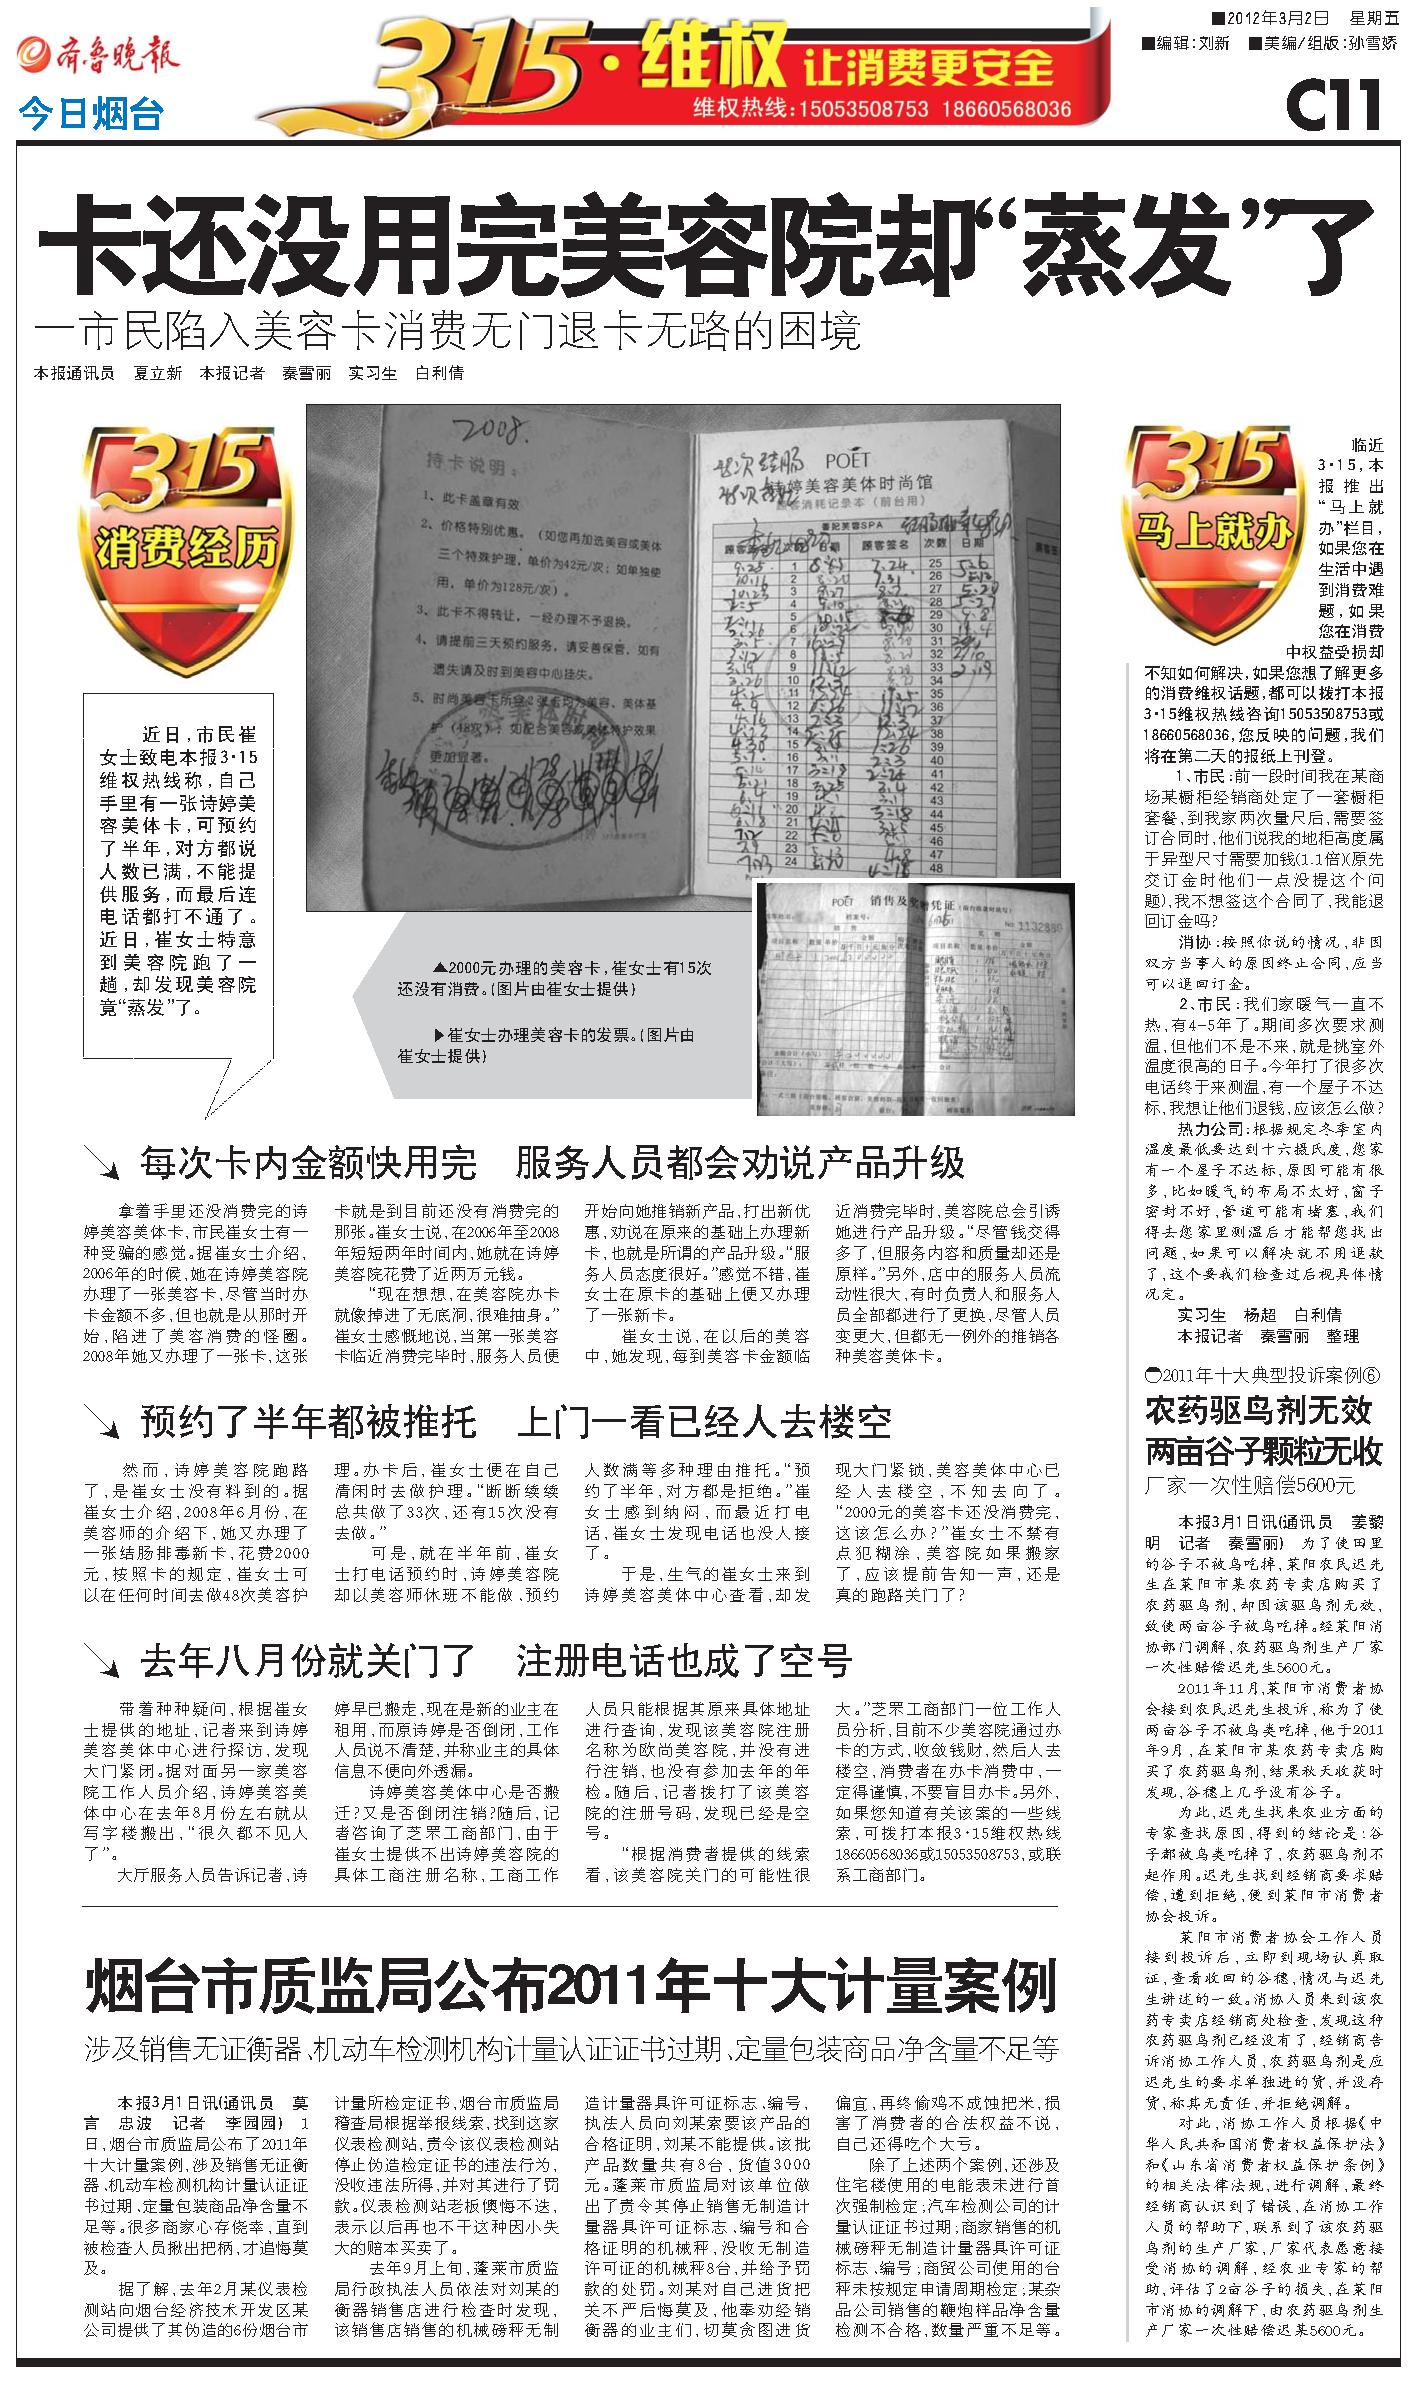 齐鲁晚报
今日烟台
315·维权 让消费更安全
维权热线:15053508753 18660568036
■2012年3月2日 星期五
■编辑:刘新 ■美编/组版:孙雪娇
C11
卡还没用完美容院却“蒸发”了
一市民陷入美容卡消费无门退卡无路的困境
本报通讯员 夏立新 本报记者 秦雪丽 实习生 白利倩
315
消费经历
近日,市民崔
女士致电本报3·15
维权热线称,自己
手里有一张诗婷美
容美体卡,可预约
了半年,对方都说
人数已满,不能提
供服务,而最后连
电话都打不通了。
近日,崔女士特意
到美容院跑了一
趟,却发现美容院
竟“蒸发”了。
2008.
持卡说明:
1、此卡盖章有效
2、价格特别优惠。(如您再加选美容或美体
三个特殊护理,单价为42元/次;如单独使
用,单价为128元/次)。
3、此卡不得转让,一经办理不予退换。
4、请提前三天预约服务,请妥善保管,如有
遗失请及时到美容中心挂失。
更加显著。
POET
诗婷美容美体时尚馆
顾客消耗记录本(前台用)
顾客签名 次数 日期 顾客签名 次数 日期
POET 销售及奖赠凭证
No 1132880
▲2000元办理的美容卡,崔女士有15次
还没有消费。(图片由崔女士提供)
▶崔女士办理美容卡的发票。(图片由
崔女士提供)
每次卡内金额快用完 服务人员都会劝说产品升级
拿着手里还没消费完的诗
婷美容美体卡,市民崔女士有一
种受骗的感觉。据崔女士介绍,
2006年的时候,她在诗婷美容院
办理了一张美容卡,尽管当时办
卡金额不多,但也就是从那时开
始,陷进了美容消费的怪圈。
2008年她又办理了一张卡,这张
卡就是到目前还没有消费完的
那张。崔女士说,在2006年至2008
年短短两年时间内,她就在诗婷
美容院花费了近两万元钱。
“现在想想,在美容院办卡
就像掉进了无底洞,很难抽身。”
崔女士感慨地说,当第一张美容
卡临近消费完毕时,服务人员便
开始向她推销新产品,打出新优
惠,劝说在原来的基础上办理新
卡,也就是所谓的产品升级。“服
务人员态度很好。”感觉不错,崔
女士在原卡的基础上便又办理
了一张新卡。
崔女士说,在以后的美容
中,她发现,每到美容卡金额临
近消费完毕时,美容院总会引诱
她进行产品升级。“尽管钱交得
多了,但服务内容和质量却还是
原样。”另外,店中的服务人员流
动性很大,有时负责人和服务人
员全部都进行了更换,尽管人员
变更大,但都无一例外的推销各
种美容美体卡。
预约了半年都被推托 上门一看已经人去楼空
然而,诗婷美容院跑路
了,是崔女士没有料到的。据
崔女士介绍,2008年6月份,在
美容师的介绍下,她又办理了
一张结肠排毒新卡,花费2000
元,按照卡的规定,崔女士可
以在任何时间去做48次美容护
理。办卡后,崔女士便在自己
清闲时去做护理。“断断续续
总共做了33次,还有15次没有
去做。”
可是,就在半年前,崔女
士打电话预约时,诗婷美容院
却以美容师休班不能做、预约
人数满等多种理由推托。“预
约了半年,对方都是拒绝。”崔
女士感到纳闷,而最近打电
话,崔女士发现电话也没人接
了。
于是,生气的崔女士来到
诗婷美容美体中心查看,却发
现大门紧锁,美容美体中心已
经人去楼空,不知去向了。
“2000元的美容卡还没消费完,
这该怎么办?”崔女士不禁有
点犯糊涂,美容院如果搬家
了,应该提前告知一声,还是
真的跑路关门了?
去年八月份就关门了 注册电话也成了空号
带着种种疑问,根据崔女
士提供的地址,记者来到诗婷
美容美体中心进行探访,发现
大门紧闭。据对面另一家美容
院工作人员介绍,诗婷美容美
体中心在去年8月份左右就从
写字楼搬出,“很久都不见人
了”。
大厅服务人员告诉记者,诗
婷早已搬走,现在是新的业主在
租用,而原诗婷是否倒闭,工作
人员说不清楚,并称业主的具体
信息不便向外透漏。
诗婷美容美体中心是否搬
迁?又是否倒闭注销?随后,记
者咨询了芝罘工商部门,由于
崔女士提供不出诗婷美容院的
具体工商注册名称,工商工作
人员只能根据其原来具体地址
进行查询,发现该美容院注册
名称为欧尚美容院,并没有进
行注销,也没有参加去年的年
检。随后,记者拨打了该美容
院的注册号码,发现已经是空
号。
“根据消费者提供的线索
看,该美容院关门的可能性很
大。”芝罘工商部门一位工作人
员分析,目前不少美容院通过办
卡的方式,收敛钱财,然后人去
楼空,消费者在办卡消费中,一
定得谨慎,不要盲目办卡。另外,
如果您知道有关该案的一些线
索,可拨打本报3·15维权热线
18660568036或15053508753,或联
系工商部门。
烟台市质监局公布2011年十大计量案例
涉及销售无证衡器、机动车检测机构计量认证证书过期、定量包装商品净含量不足等
本报3月1日讯(通讯员 莫
言 忠波 记者 李园园) 1
日,烟台市质监局公布了2011年
十大计量案例,涉及销售无证衡
器、机动车检测机构计量认证证
书过期、定量包装商品净含量不
足等。很多商家心存侥幸,直到
被检查人员揪出把柄,才追悔莫
及。
据了解,去年2月某仪表检
测站向烟台经济技术开发区某
公司提供了其伪造的6份烟台市
计量所检定证书,烟台市质监局
稽查局根据举报线索,找到这家
仪表检测站,责令该仪表检测站
停止伪造检定证书的违法行为,
没收违法所得,并对其进行了罚
款。仪表检测站老板懊悔不迭,
表示以后再也不干这种因小失
大的赔本买卖了。
去年9月上旬,蓬莱市质监
局行政执法人员依法对刘某的
衡器销售店进行检查时发现,
该销售店销售的机械磅秤无制
造计量器具许可证标志、编号,
执法人员向刘某索要该产品的
合格证明,刘某不能提供。该批
产品数量共有8台,货值3000
元。蓬莱市质监局对该单位做
出了责令其停止销售无制造计
量器具许可证标志、编号和合
格证明的机械秤,没收无制造
许可证的机械秤8台,并给予罚
款的处罚。刘某对自己进货把
关不严后悔莫及,他奉劝经销
衡器的业主们,切莫贪图进货
偏宜,再终偷鸡不成蚀把米,损
害了消费者的合法权益不说,
自己还得吃个大亏。
除了上述两个案例,还涉及
住宅楼使用的电能表未进行首
次强制检定;汽车检测公司的计
量认证证书过期;商家销售的机
械磅秤无制造计量器具许可证
标志、编号;商贸公司使用的台
秤未按规定申请周期检定;某杂
品公司销售的鞭炮样品净含量
检测不合格,数量严重不足等。
315
马上就办
临近
3·15,本
报推出
“马上就
办”栏目,
如果您在
生活中遇
到消费难
题,如果
您在消费
中权益受损却
不知如何解决,如果您想了解更多
的消费维权话题,都可以拨打本报
3·15维权热线咨询15053508753或
18660568036,您反映的问题,我们
将在第二天的报纸上刊登。
1、市民:前一段时间我在某商
场某橱柜经销商处定了一套橱柜
套餐,到我家两次量尺后,需要签
订合同时,他们说我的地柜高度属
于异型尺寸需要加钱(1.1倍)(原先
交订金时他们一点没提这个问
题),我不想签这个合同了,我能退
回订金吗?
消协:按照你说的情况,非因
双方当事人的原因终止合同,应当
可以退回订金。
2、市民:我们家暖气一直不
热,有4-5年了。期间多次要求测
温,但他们不是不来,就是挑室外
温度很高的日子。今年打了很多次
电话终于来测温,有一个屋子不达
标,我想让他们退钱,应该怎么做?
热力公司:根据规定冬季室内
温度最低要达到十六摄氏度,您家
有一个屋子不达标,原因可能有很
多,比如暖气的布局不太好,窗子
密封不好,管道可能有堵塞,我们
得去您家里测温后才能帮您找出
问题,如果可以解决就不用退款
了,这个要我们检查过后视具体情
况定。
实习生 杨超 白利倩
本报记者 秦雪丽 整理
2011年十大典型投诉案例⑥
农药驱鸟剂无效
两亩谷子颗粒无收
厂家一次性赔偿5600元
本报3月1日讯(通讯员 姜黎
明 记者 秦雪丽) 为了使田里
的谷子不被鸟吃掉,莱阳农民迟先
生在莱阳市某农药专卖店购买了
农药驱鸟剂,却因该驱鸟剂无效,
致使两亩谷子被鸟吃掉。经莱阳消
协部门调解,农药驱鸟剂生产厂家
一次性赔偿迟先生5600元。
2011年11月,莱阳市消费者协
会接到农民迟先生投诉,称为了使
两亩谷子不被鸟类吃掉,他于2011
年9月,在莱阳市某农药专卖店购
买了农药驱鸟剂,结果秋天收获时
发现,谷穗上几乎没有谷子。
为此,迟先生找来农业方面的
专家查找原因,得到的结论是:谷
子都被鸟类吃掉了,农药驱鸟剂不
起作用。迟先生找到经销商要求赔
偿,遭到拒绝,便到莱阳市消费者
协会投诉。
莱阳市消费者协会工作人员
接到投诉后,立即到现场认真取
证,查看收回的谷穗,情况与迟先
生讲述的一致。消协人员来到该农
药专卖店经销商处检查,发现这种
农药驱鸟剂已经没有了,经销商告
诉消协工作人员,农药驱鸟剂是应
迟先生的要求单独进的货,并没存
货,称其无责任,并拒绝调解。
对此,消协工作人员根据《中
华人民共和国消费者权益保护法》
和《山东省消费者权益保护条例》
的相关法律法规,进行调解,最终
经销商认识到了错误,在消协工作
人员的帮助下,联系到了该农药驱
鸟剂的生产厂家,厂家代表愿意接
受消协的调解,经农业专家的帮
助,评估了2亩谷子的损失,在莱阳
市消协的调解下,由农药驱鸟剂生
产厂家一次性赔偿迟某5600元。